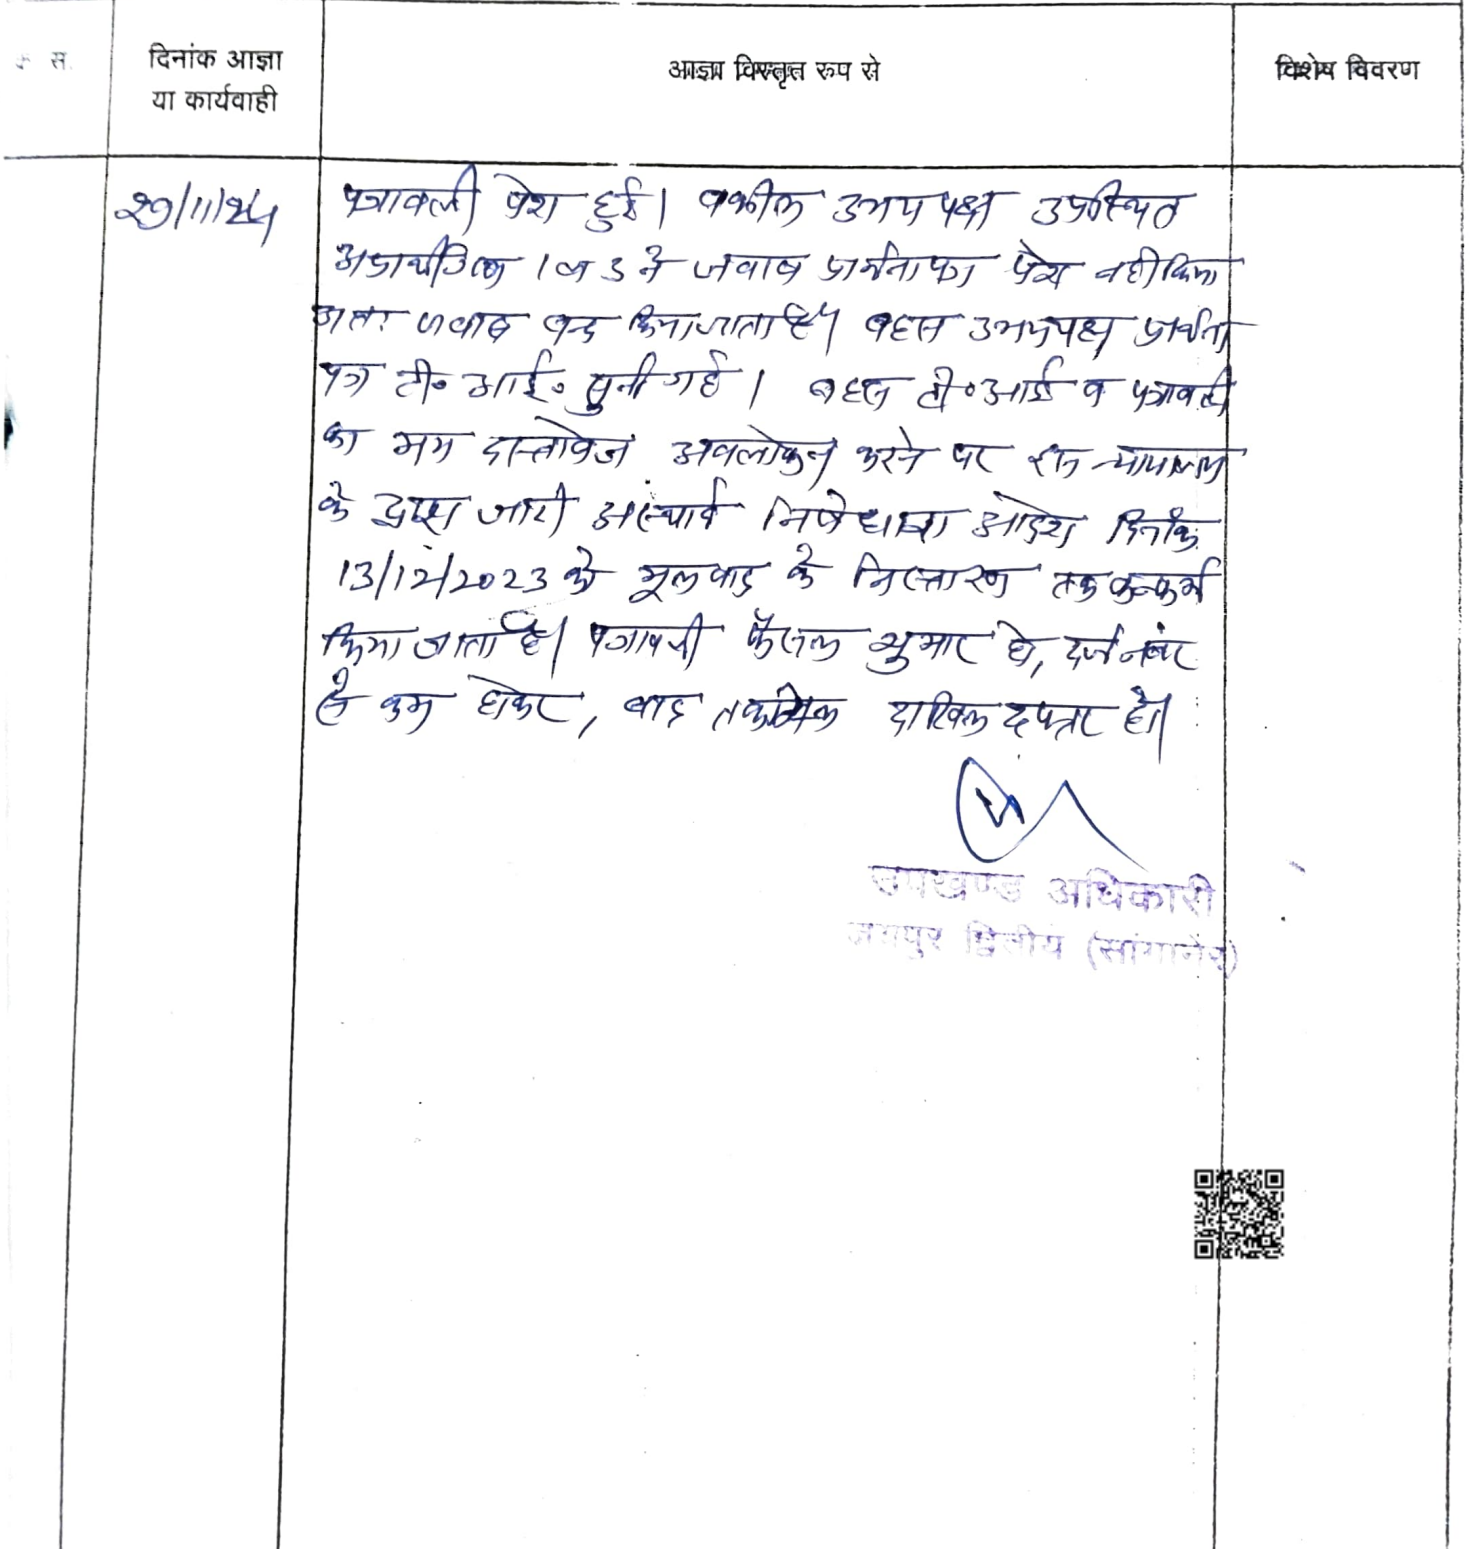 स.
दिनांक आज्ञा
या कार्यवाही
आज्ञा विस्तृत रूप से
विशेष विवरण
पत्रावली पेश हुई। वकील उभयपक्ष उपस्थित
1 व 3 ने जवाब प्रार्थनापत्र पेश नहीं किया
अतः जवाब बन्द किया जाता है। बहस उभयपक्ष प्रार्थना
पत्र टी॰ आई॰ सुनी गई। बहस टी॰आई व पत्रावली
का मय दस्तावेज अवलोकन करने पर इस न्यायालय
के द्वारा जारी अस्थाई निषेधाज्ञा आदेश दिनांक
13/12/2023 को मूलवाद के निस्तारण तक कन्फर्म
किया जाता है। पत्रावली फैसल शुमार हो, दर्ज नंबर
से कम होकर, बाद तकमील दाखिल दफ्तर हो।
उपखण्ड अधिकारी
जयपुर द्वितीय (सांगानेर)